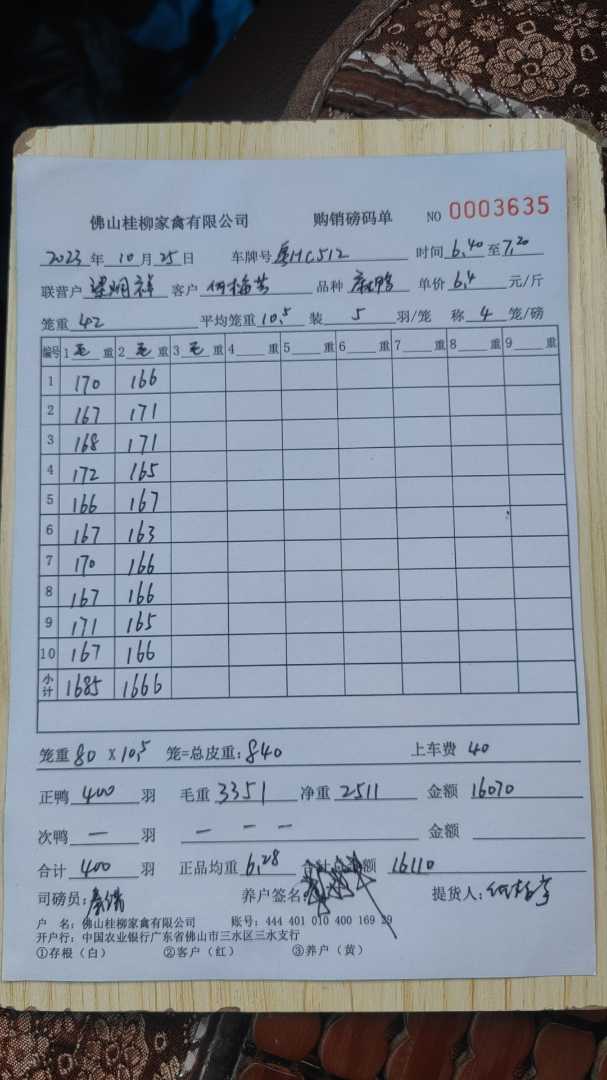 佛山桂柳家禽有限公司 购销磅码单 NO 0003635
2023年10月25日 车牌号 粤HC512 时间 6.40 至 7.20
联营户 梁炳祥 客户 何梅芳 品种 麻鸭 单价 6.4 元/斤
笼重 42 平均笼重 10.5 装 5 羽/笼 称 4 笼/磅
编号 1 毛 重 2 毛 重 3 毛 重 4 重 5 重 6 重 7 重 8 重 9 重
1 170 166
2 167 171
3 168 171
4 172 165
5 166 167
6 167 163
7 170 166
8 167 166
9 171 165
10 167 166
小计 1685 1666
笼重 80 X 10.5 笼=总皮重: 840 上车费 40
正鸭 400 羽 毛重 3351 净重 2511 金额 16070
次鸭 — 羽 — — — 金额
合计 400 羽 正品均重 6.28 合计总金额 16110
司磅员: 养户签名: 提货人:
户 名: 佛山桂柳家禽有限公司 账号: 444 401 010 400 169 29
开户行: 中国农业银行广东省佛山市三水区三水支行
①存根（白） ②客户（红） ③养户（黄）